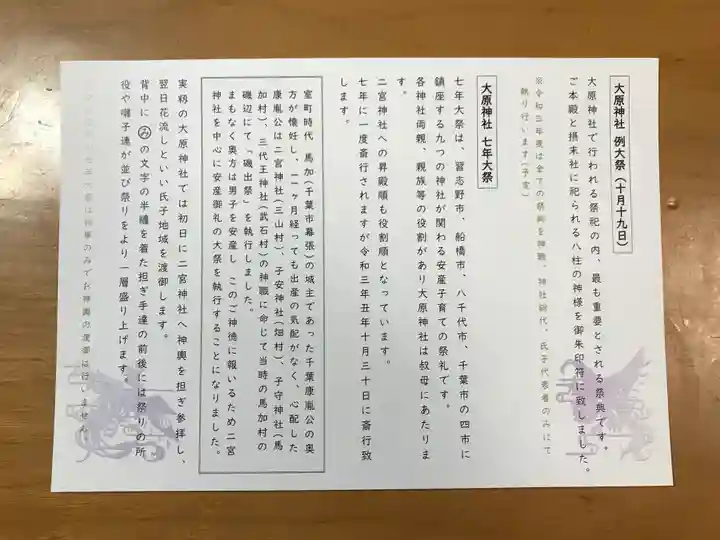 大原神社 例大祭(十月十九日)
大原神社で行われる祭祀の内、最も重要とされる祭典です。
ご本殿と摂末社に祀られる八柱の神様を御朱印符に致しました。
※令和三年度は全ての祭典を神職、神社総代、氏子代表者のみにて
執り行います(予定)
大原神社 七年大祭
七年大祭は、習志野市、船橋市、八千代市、千葉市の四市に
鎮座する九つの神社が関わる安産子育ての祭礼です。
各神社両親、親族等の役割があり大原神社は叔母にあたりま
す。
二宮神社への昇殿順も役割順となっています。
七年に一度斎行されますが令和三年丑年十月三十日に斎行致
します。
室町時代 馬加(千葉市幕張)の城主であった千葉康胤公の奥
方が懐妊し、十一ヶ月経っても出産の気配がなく、心配した
康胤公は二宮神社(三山村)、子安神社(畑村)、子守神社(馬
加村)、三代王神社(武石村)の神職に命じて当時の馬加村の
磯辺にて「磯出祭」を執行しました。
まもなく奥方は男子を安産し このご神徳に報いるため二宮
神社を中心に安産御礼の大祭を執行することになりました。
実籾の大原神社では初日に二宮神社へ神輿を担ぎ参拝し、
翌日花流しといい氏子地域を渡御します。
背中に㋯の文字の半纏を着た担ぎ手達の前後には祭りの所
役や囃子連が並び祭りをより一層盛り上げます。
七年大祭は神事のみでお神輿の渡御は行いません。